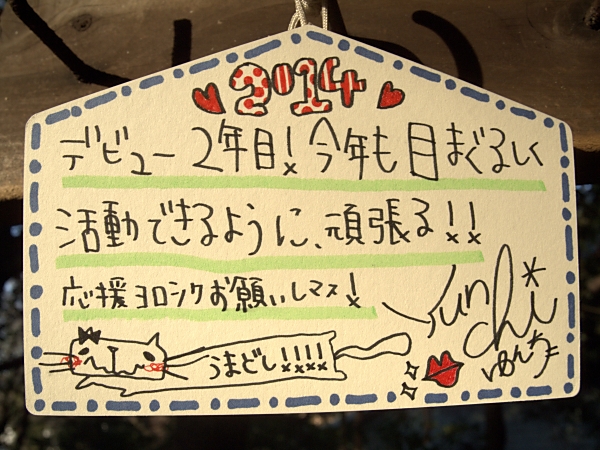 2014
デビュー2年目!今年も目まぐるしく
活動できるように、頑張る!!
応援ヨロシクお願いしマス!
うまどし!!!!
Yun*chi
ゆんちチ